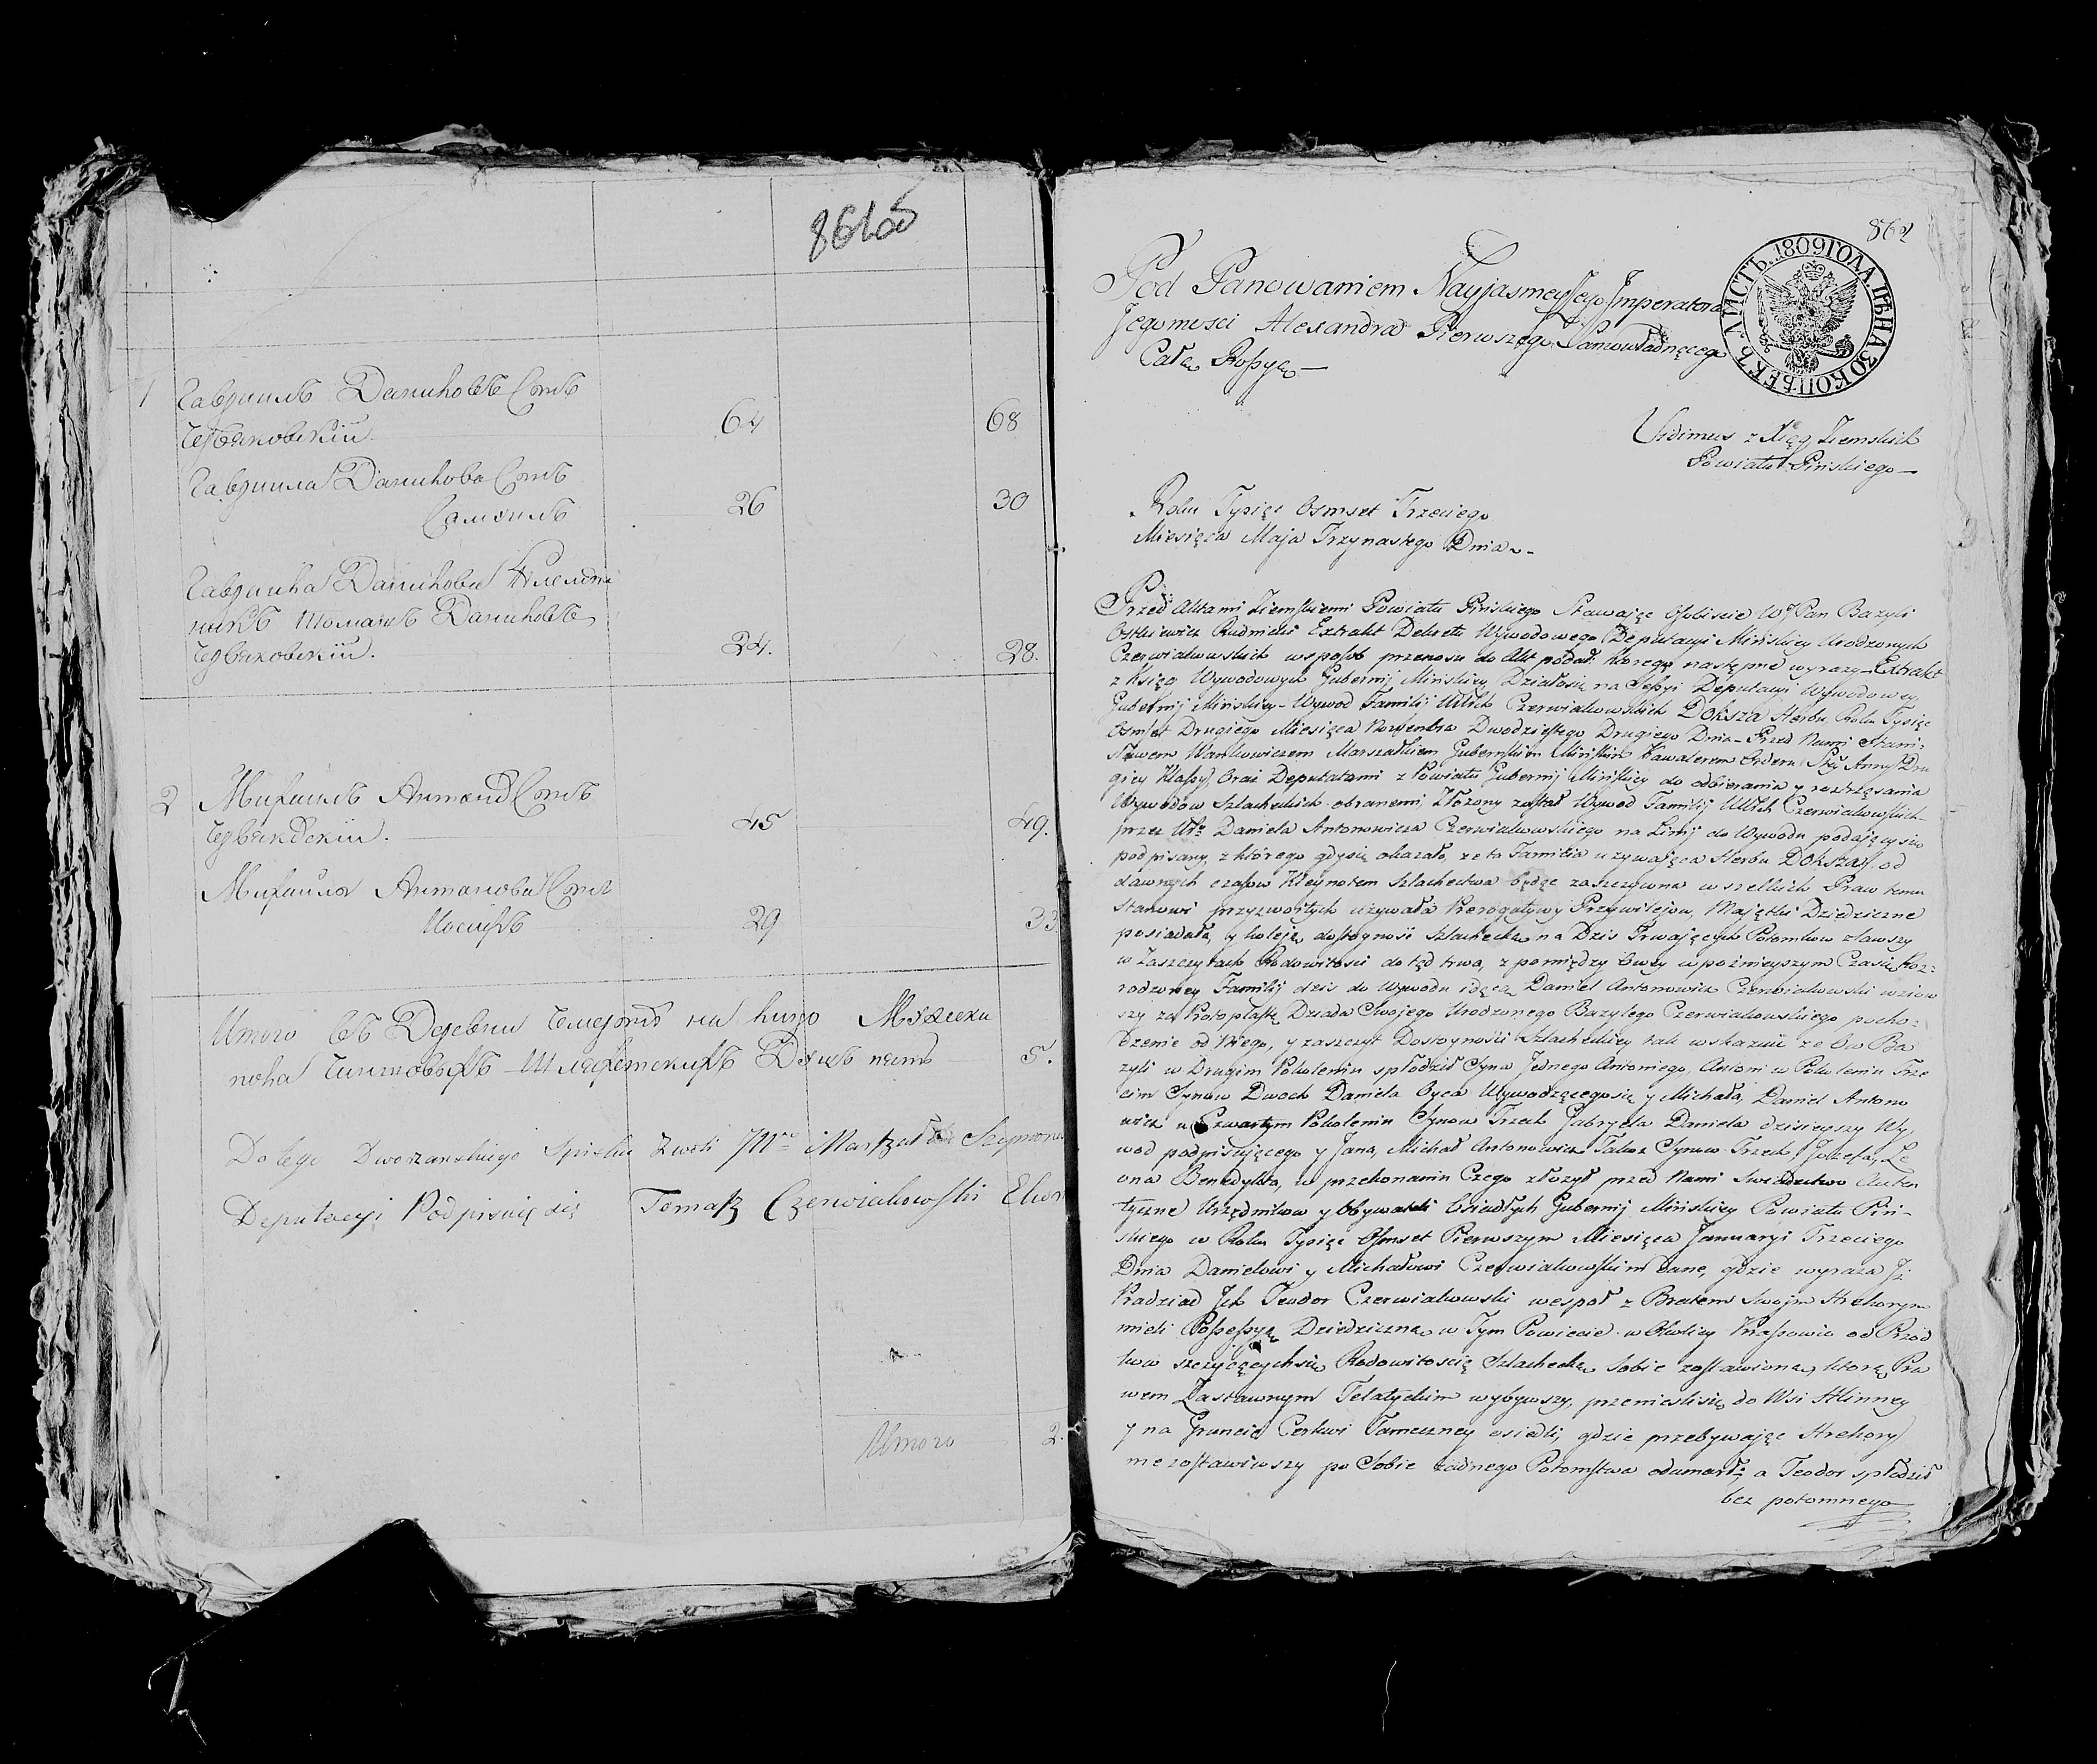 861об
1 Гавриилъ Даниловъ Сынъ
Червяковскiй. 64 68
Гавриила Данилова Сынъ
Самуилъ 26 30
Гавриила Данилова Племян
никъ Томашъ Даниловъ
Червяковскiй. 24. 28.
2 Михаилъ Антоновъ Сынъ
Червяковскiй. 45 49.
Михаила Антонова Сынъ
Иосифъ 29 33
Итого въ Деревни на лицо Мужеска
пола Чиншовыхъ Шляхетскихъ Душъ пять 5.
Do tego Dworzanskiego Spisku Zwoli Marszał Szymona
Deputacyi Podpisuię się Tomasz Czerwiakowski
Итого 2.
862
ЛИСТЪ. 1809 ГОДА ЦѢНА 30 КОПѢЕКЪ.
Pod Panowaniem Nayjasnieyszego Imperatora
Jegomosci Alexandra Pierwszego Samowładnącego
Całą Rossyą
Vidimus z Xiąg Ziemskich
Powiatu Pińskiego
Roku Tysiąc Osmset Trzeciego
Miesiąca Maja Trzynastego Dnia
Przed Aktami Ziemskiemi Powiatu Pińskiego Stawając Osobiscie Wy Pan Bazyli
Ostkiewicz Rudnicki Extrakt Dekretu Wywodowego Deputacyi Mińskiey Urodzonych
Czerwiakowskich wsposob przenosu do Akt podał. Ktorego następne wyrazy Extrakt
z Xiąg Wywodowych Gubernij Mińskiey Działosię na Sessyi Deputacyi Wywodowey
Gubernij Mińskiey Wywod Familij Ur̃ch Czerwiakowskich Doksza Herbu Roku Tysiąc
Osmset Drugiego Miesiąca Nowembra Dwodziestego Drugiego Dnia Przed Nami Stani:
sławem Wankowiczem Marszałkiem Gubernskim Mińskim Kawalerem Orderu Stey Anny Dru
giey Klassy, Oraz Deputatami z Powiatu Gubernij Mińskiey do odbierania y roztrząsania
Wywodow Szlacheckich obranemi, Złożony został Wywod Familij Ur̃ch Czerwiakowskich
przez Ur̃o Daniela Antonowicza Czerwiakowskiego na Linij do Wywodu podającysię
podpisany, z którego gdysię okazało, że ta Familia używająca Herbu Doksza od
dawnych czasow Kleynotem Szlachectwa będąc zaszczycona wszelkich Praw temu
Stanowi przyzwoitych używała Prerogatywy Przywilejow, Majątki Dziedziczne
posiadała y koleją dostoyności Szlachecka na Dzis Trwających Potomkow zlawszy
w Zaszczytach Rodowitosci do tąd trwa, z pomiędzy owey wpoznieyszym Czasie Roz:
rodzoney Familij dziś do Wywodu idąca Daniel Antonowicz Czerwiakowski wziow
szy za Protoplastę Dziada Swojego Urodzonego Bazylego Czerwiakowskiego pocho:
dzenie od niego, y zaszczyt Dostoyności Szlacheckiey tak wskazuie że ów Ba
zyli w Drugim Pokoleniu spłodził Syna Jednego Antoniego, Antoni w Pokoleniu Trze
cim Synow Dwoch Daniela Oyca Wywodzącegosię y Michała, Daniel Antono
wicz w Czwartym Pokoleniu Synow Trzech Gabryela Daniela dzisieyszy Wy,
wod podpisującego y Jana, Michał Antonowicz Takoż Synow Trzech, Jozefa, Le
ona Benedykta, w przekonaniu Czego złożył przed Nami Swiadectwo Auten
tyczne Urzędnikow y Obywateli Osiadłych Gubernij Mińskiey Powiatu Piń-
skiego w Roku Tysiąc Osmset Pierwszym Miesiąca Januaryi Trzeciego
Dnia Danielowi y Michałowi Czerwiakowskim dane, gdzie wyraża Jż
Pradziad Jch Teodor Czerwiakowski wespoł z Bratem Swojm Hrehorym
mieli Possessyą Dziedziczną w Tym Powiecie w Okolicy Krassowie od Przod
kow szczycącychsię Rodowitoscią Szlachecką Sobie zostawioną, ktorą Pra
wem Zastawnym Telatyckim wybywszy, przeniesli się do Wsi Hlinney
y na Gruncie Cerkwi Tameczney osiedli, gdzie przebywając Hrehory
niezostawiwszy po Sobie żadnego Potomstwa odumarł, a Teodor spłodził
bez potomnego